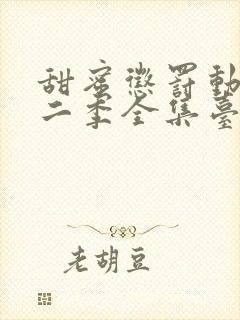 甜蜜懲罰動
二季全集臺
老胡豆